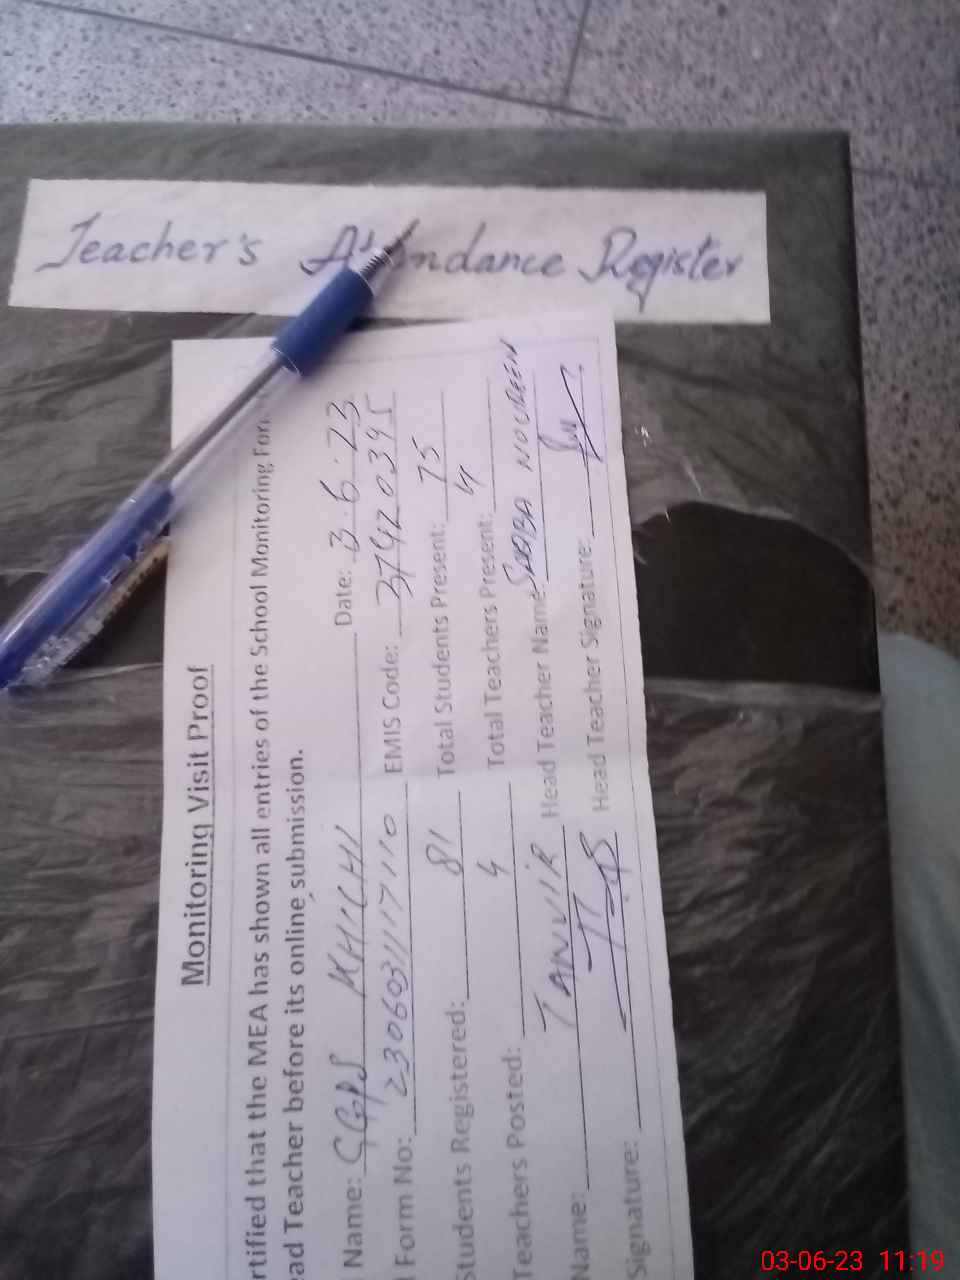 Teacher's Attendance Register
Monitoring Visit Proof
rtified that the MEA has shown all entries of the School Monitoring For
ead Teacher before its online submission.
Name: GGPS KHICHI Date: 3.6.23
Form No: 230603117110 EMIS Code: 37420395
Students Registered: 81 Total Students Present: 75
Teachers Posted: 4 Total Teachers Present: 4
Name: TANVIR Head Teacher Name: SABBA NOUREEN
Signature: Head Teacher Signature:
03-06-23 11:19